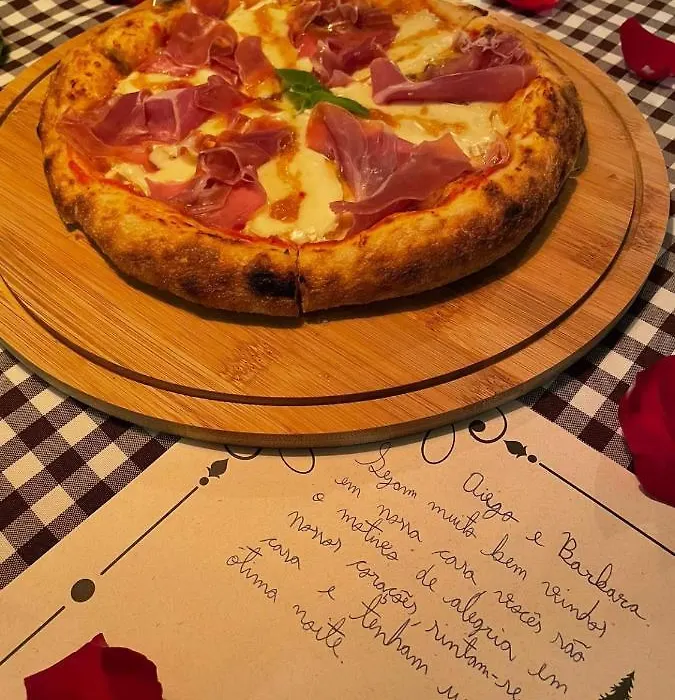 Diego e Barbara.
Sejam muito bem vindos
em nossa casa vocês são
o motivo de alegria em
nossos corações, sintam-se
casa e tenham
ótima noite.